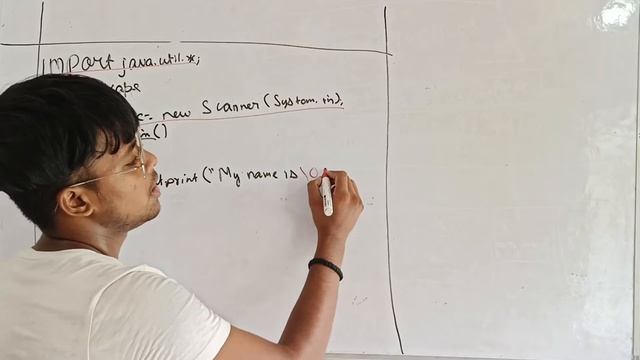 import java.util.*;
cape
= new Scanner (System.in);
in()
tprint ("My name is \